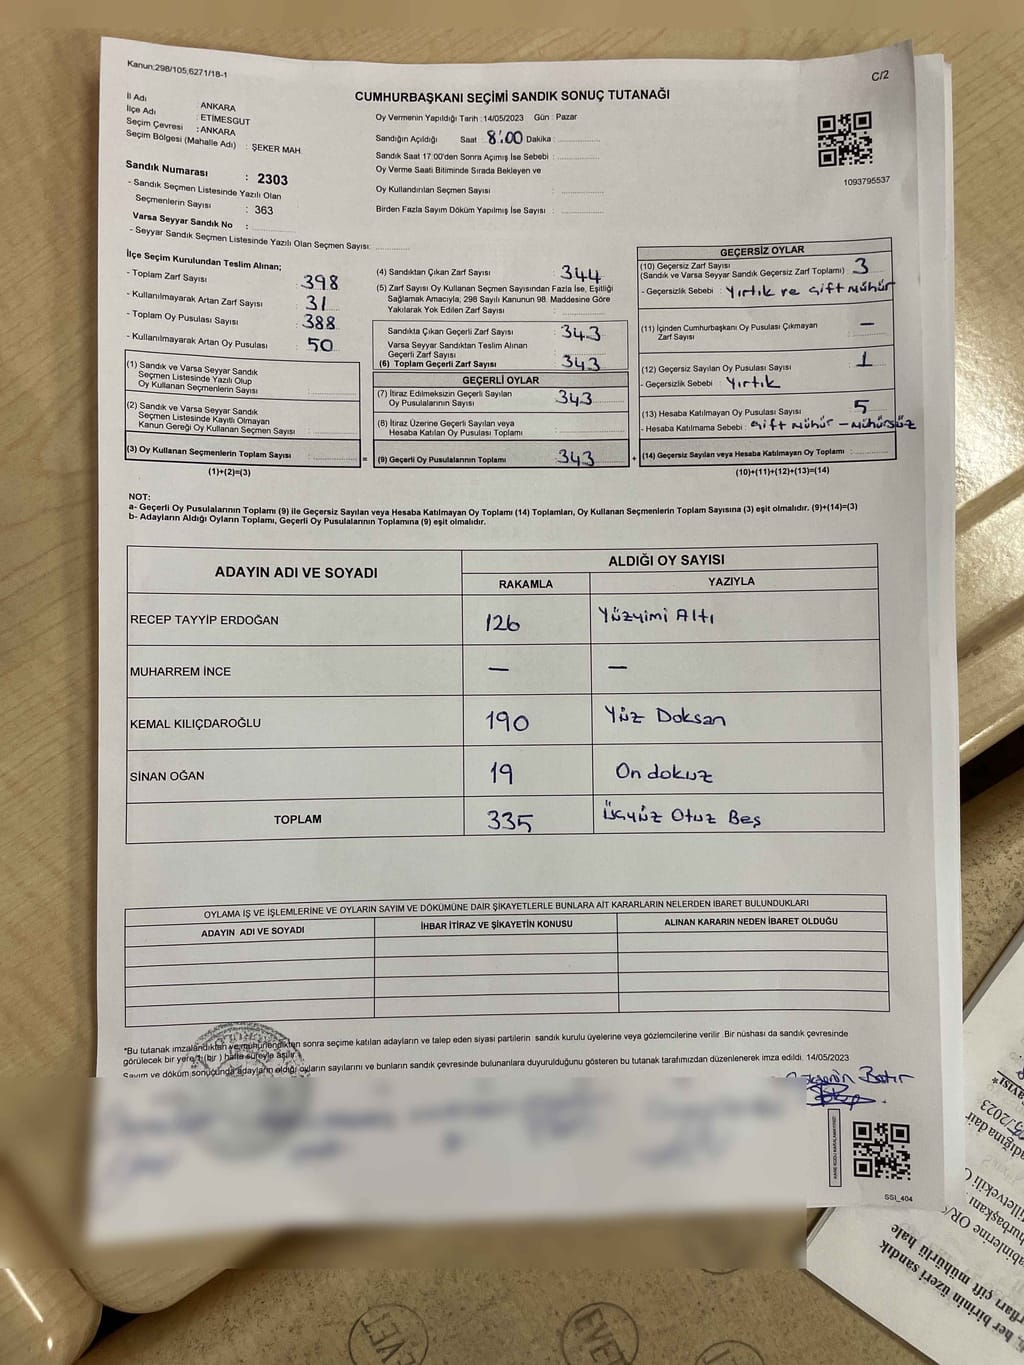 Kanun;298/105,6271/18-1
C/2
CUMHURBAŞKANI SEÇİMİ SANDIK SONUÇ TUTANAĞI
İl Adı : ANKARA
İlçe Adı : ETİMESGUT
Seçim Çevresi : ANKARA
Seçim Bölgesi (Mahalle Adı) : ŞEKER MAH.
Sandık Numarası : 2303
- Sandık Seçmen Listesinde Yazılı Olan
Seçmenlerin Sayısı : 363
Varsa Seyyar Sandık No :
- Seyyar Sandık Seçmen Listesinde Yazılı Olan Seçmen Sayısı:
Oy Vermenin Yapıldığı Tarih :14/05/2023 Gün : Pazar
Sandığın Açıldığı Saat 8:00 Dakika :
Sandık Saat 17:00'den Sonra Açımış İse Sebebi :
Oy Verme Saati Bitiminde Sırada Bekleyen ve
Oy Kullandırılan Seçmen Sayısı :
Birden Fazla Sayım Döküm Yapılmış İse Sayısı :
1093795537
İlçe Seçim Kurulundan Teslim Alınan;
- Toplam Zarf Sayısı : 398
- Kullanılmayarak Artan Zarf Sayısı : 31
- Toplam Oy Pusulası Sayısı : 388
- Kullanılmayarak Artan Oy Pusulası : 50
(1) Sandık ve Varsa Seyyar Sandık
Seçmen Listesinde Yazılı Olup
Oy Kullanan Seçmenlerin Sayısı :
(2) Sandık ve Varsa Seyyar Sandık
Seçmen Listesinde Kayıtlı Olmayan
Kanun Gereği Oy Kullanan Seçmen Sayısı :
(3) Oy Kullanan Seçmenlerin Toplam Sayısı :
(1)+(2)=(3)
(4) Sandıktan Çıkan Zarf Sayısı : 344
(5) Zarf Sayısı Oy Kullanan Seçmen Sayısından Fazla İse, Eşitliği
Sağlamak Amacıyla; 298 Sayılı Kanunun 98. Maddesine Göre
Yakılarak Yok Edilen Zarf Sayısı :
Sandıkta Çıkan Geçerli Zarf Sayısı : 343
Varsa Seyyar Sandıktan Teslim Alınan
Geçerli Zarf Sayısı :
(6) Toplam Geçerli Zarf Sayısı : 343
GEÇERLİ OYLAR
(7) İtiraz Edilmeksizin Geçerli Sayılan
Oy Pusulalarının Sayısı : 343
(8) İtiraz Üzerine Geçerli Sayılan veya
Hesaba Katılan Oy Pusulası Toplamı :
= (9) Geçerli Oy Pusulalarının Toplamı : 343
GEÇERSİZ OYLAR
(10) Geçersiz Zarf Sayısı
(Sandık ve Varsa Seyyar Sandık Geçersiz Zarf Toplamı) : 3
- Geçersizlik Sebebi : Yırtık ve Çift Mühür
(11) İçinden Cumhurbaşkanı Oy Pusulası Çıkmayan
Zarf Sayısı : –
(12) Geçersiz Sayılan Oy Pusulası Sayısı : 1
- Geçersizlik Sebebi : Yırtık
(13) Hesaba Katılmayan Oy Pusulası Sayısı : 5
- Hesaba Katılmama Sebebi : Çift Mühür – Mühürsüz
+ (14) Geçersiz Sayılan veya Hesaba Katılmayan Oy Toplamı :
(10)+(11)+(12)+(13)=(14)
NOT:
a- Geçerli Oy Pusulalarının Toplamı (9) ile Geçersiz Sayılan veya Hesaba Katılmayan Oy Toplamı (14) Toplamları, Oy Kullanan Seçmenlerin Toplam Sayısına (3) eşit olmalıdır. (9)+(14)=(3)
b- Adayların Aldığı Oyların Toplamı, Geçerli Oy Pusulalarının Toplamına (9) eşit olmalıdır.
ADAYIN ADI VE SOYADI
ALDIĞI OY SAYISI
RAKAMLA YAZIYLA
RECEP TAYYİP ERDOĞAN 126 Yüzyimi Altı
MUHARREM İNCE – –
KEMAL KILIÇDAROĞLU 190 Yüz Doksan
SİNAN OĞAN 19 On dokuz
TOPLAM 335 Üçyüz Otuz Beş
OYLAMA İŞ VE İŞLEMLERİNE VE OYLARIN SAYIM VE DÖKÜMÜNE DAİR ŞİKAYETLERLE BUNLARA AİT KARARLARIN NELERDEN İBARET BULUNDUKLARI
ADAYIN ADI VE SOYADI İHBAR İTİRAZ VE ŞİKAYETİN KONUSU ALINAN KARARIN NEDEN İBARET OLDUĞU
*Bu tutanak imzalandıktan ve mühürlendikten sonra seçime katılan adayların ve talep eden siyasi partilerin sandık kurulu üyelerine veya gözlemcilerine verilir .Bir nüshası da sandık çevresinde
görülecek bir yere 1 (bir ) hafta süreyle asılır.
Sayım ve döküm sonucunda adayların aldığı oyların sayılarını ve bunların sandık çevresinde bulunanlara duyurulduğunu gösteren bu tutanak tarafımızdan düzenlenerek imza edildi. 14/05/2023
Batır
SSI_404
her birinin üzeri sandık
çift mühürlü hale
EVET
EVET